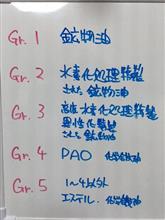 Gr. 1 鉱物油
Gr. 2 水素化処理精製
された鉱物油
Gr. 3 高度水素化処理精製
異性化精製
された鉱物油
Gr. 4 PAO 化学合成油
Gr. 5 1〜4以外
エステル. 化学合成油